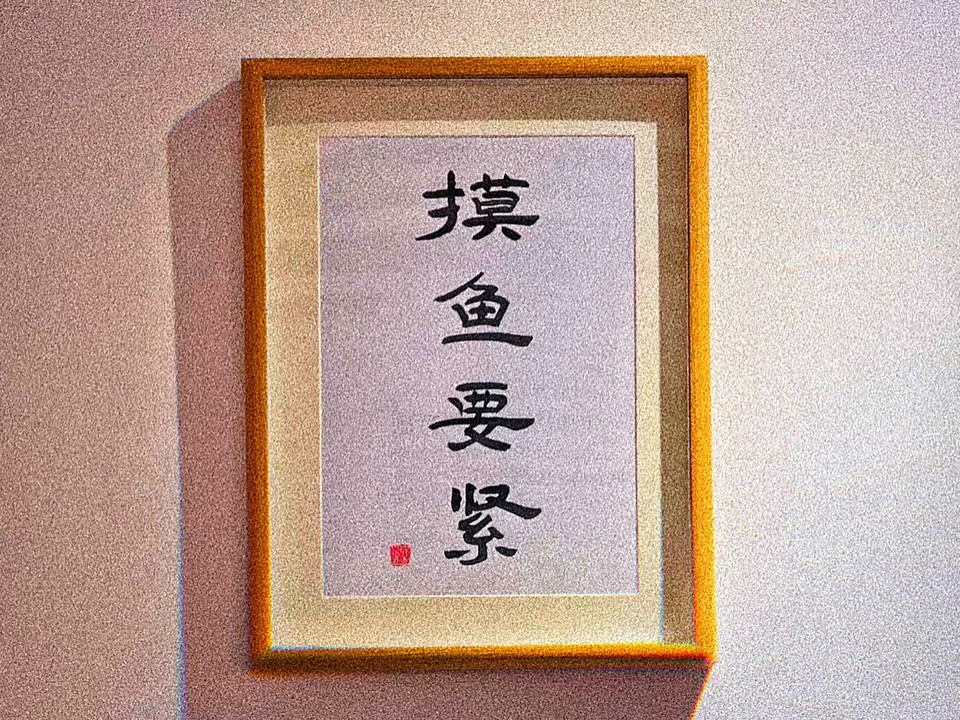 摸鱼要紧